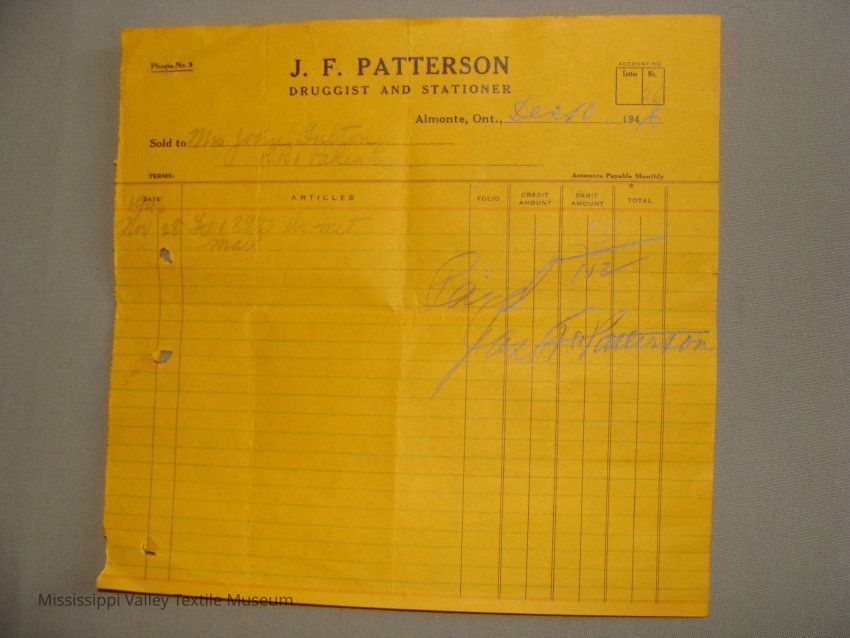 Phone No. 9
J. F. PATTERSON
DRUGGIST AND STATIONER
ACCOUNT NO.
Letter No.
26
Almonte, Ont., Dec 10 1946
Sold to Mrs John Fulton
RR1 Pakenham
TERMS: Accounts Payable Monthly
DATE ARTICLES FOLIO CREDIT AMOUNT DEBIT AMOUNT TOTAL
1946
Nov 28
Paid
Jas. F. Patterson
Mississippi Valley Textile Museum